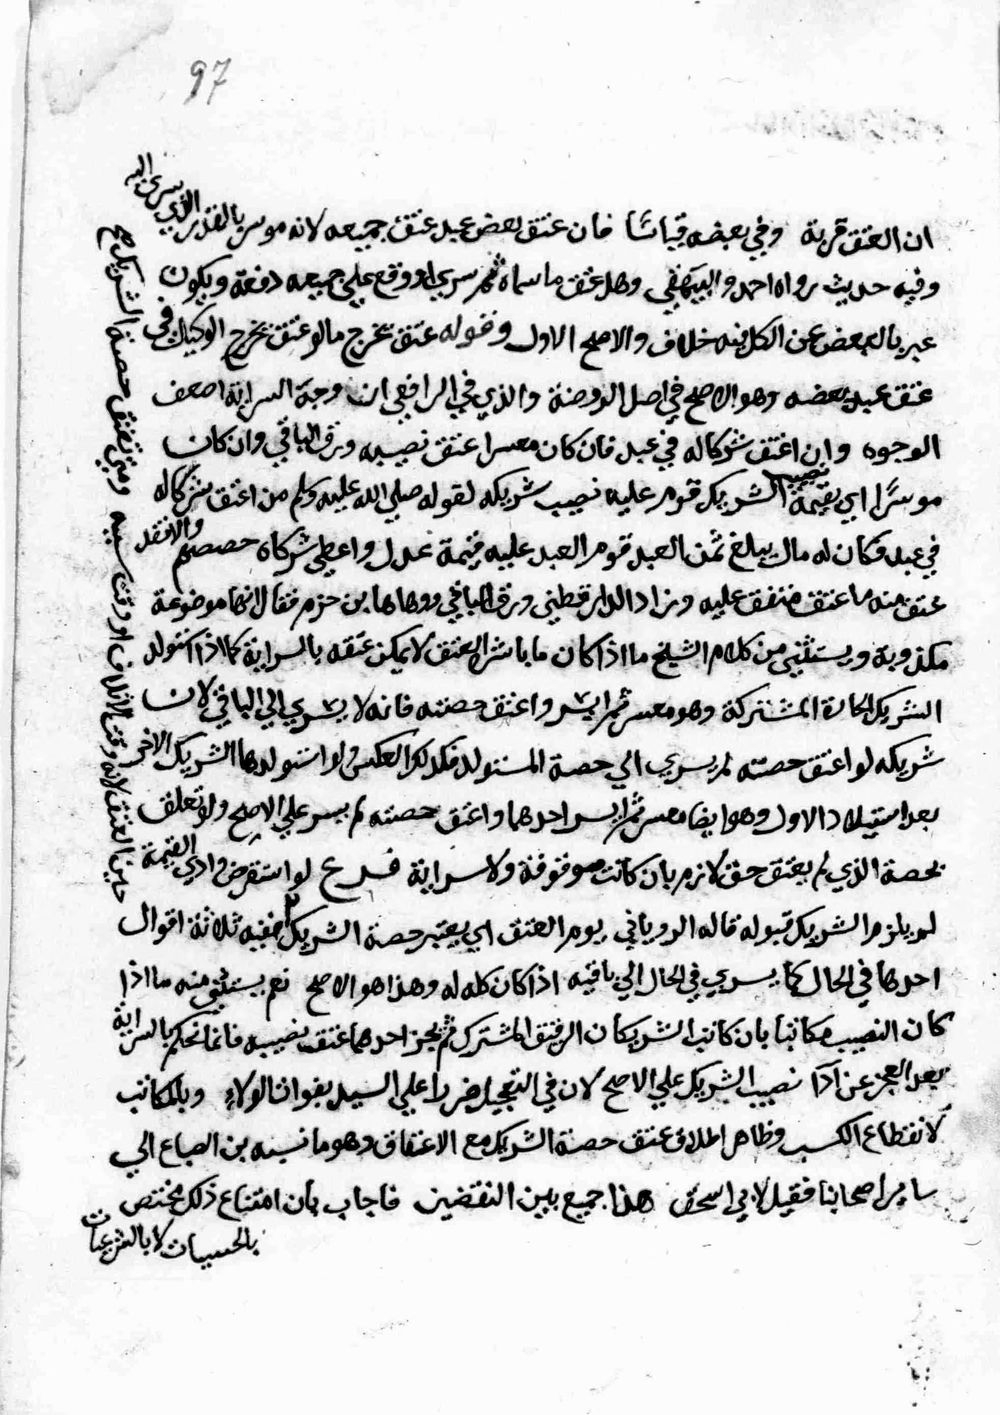 97
ان العتق قربة وفي بعضه قياسا فان عتق بعض عبد عتق جميعه لانه موسر بالقدر الذي سري اليه
وفيه حديث رواه احمد والبيهقي وهل عتق ما سماه ثم سري او وقع علي جميعه دفعة ويكون
عبر بالبعض عن الكل فيه خلاف والاصح الاول وقوله عتق تخرج مالو عتق تخرج الوكيل في
عتق عبد بعضه وهو الاصح في اصل الروضة والذي في الرافعي ان وجه السراية اضعف
الوجوه وان اعتق شركا له في عبد فان كان معسرا عتق نصيبه ورق الباقي وان كان
موسرا اي بقيمة نصيب الشريك قوم عليه نصيب شريكه لقوله صلي الله عليه وسلم من اعتق شركا له
في عبد فكان له مال يبلغ ثمن العبد قوم العبد عليه قيمة عدل واعطي شركاه حصصهم والا فقد
عتق منه ما عتق متفق عليه وزاد الدارقطني ورق الباقي ووهاها بن حزم فقال انها موضوعة
مكذوبة ويستثني من كلام الشيخ ما اذا كان ما باشر العتق لا يمكن عتقه بالسراية كما اذا استولد
الشريك الجارية المشتركة وهو معسر ثم ايسر واعتق حصته فانه لا يسري الي الباقي لان
شريكه لو اعتق حصته لم يسري الي حصة المستولد فكذلك العكس ولو استولدها الشريك الاخر
بعد استيلاد الاول وهو ايضا معسر ثم ايسر احدهما واعتق حصته لم يسر علي الاصح ولو تعلق
بحصة الذي لم يعتق حق لازم بان كانت موقوفة ولا سراية فرع لو استقرض وادي القيمة
لم يلزم الشريك قبوله قاله الروياني يوم العتق اي يعتبر حصة الشريك ففيه ثلاثة اقوال
احدها في الحال كما يسري في الحال الي باقيه اذا كان كله له وهذا هو الاصح نعم يستثني منه ما اذا
كان النصيب مكاتبا بان كاتب الشريكان الرقيق المشترك ثم نجز احدهما عتق نصيبه فانما نحكم بالسراية
بعد العجز عن ادا نصيب الشريك علي الاصح لان في التعجيل ضررا علي السيد بفوات الولاء وبالمكاتب
لانقطاع الكسب وظاهر اطلاق عتق حصة الشريك مع الاعتاق وهو ما نسبه بن الصباغ الي
ساير اصحابنا فقيل لابي اسحق هذا جمع بين النقضين فاجاب بان امتناع ذلك مختص
بالحسيات لا بالشرعيات
ومتي تعتق حصة الشريك
حين العتق لانه وقت الاتلاف او وقت سببه